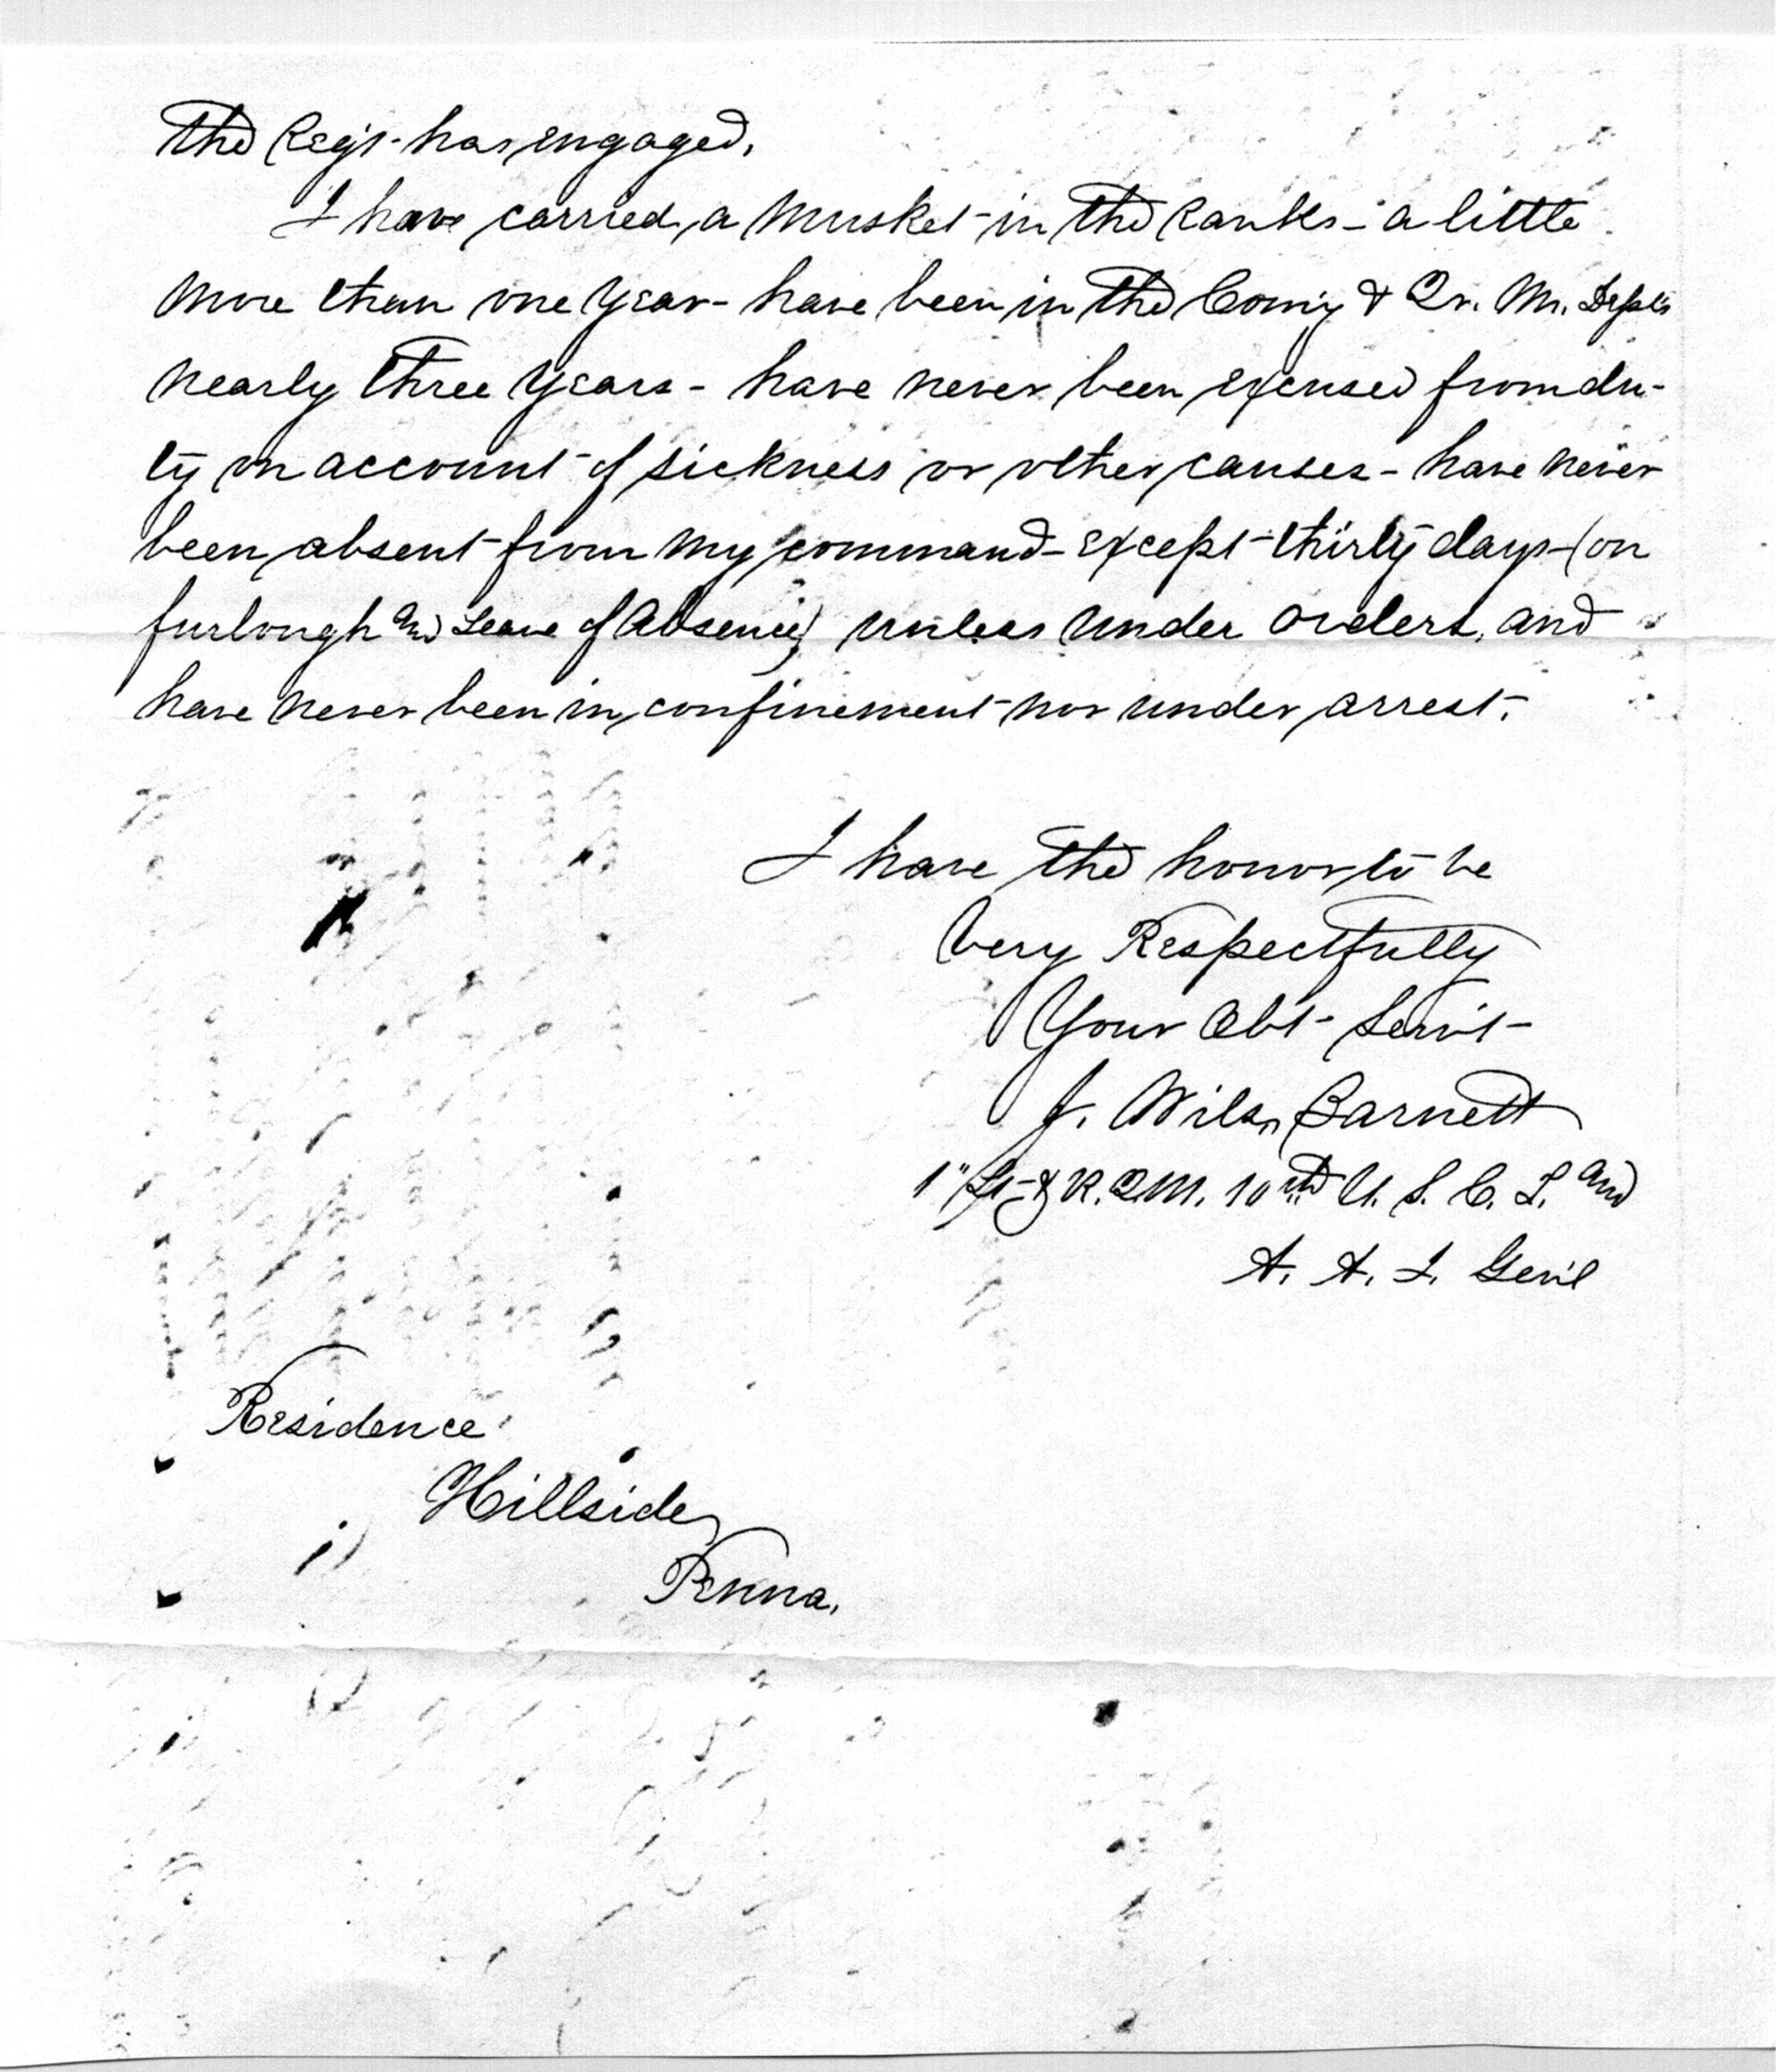 the Reg't has engaged.
I have carried a musket in the ranks - a little
more than one year - have been in the Com'y & Qr. M. Dept's
nearly three years - have never been excused from du-
ty on account of sickness or other causes - have never
been absent from my command - except thirty days - (on
furlough and Leave of Absence) unless under orders, and
have never been in confinement nor under arrest.
I have the honor to be
Very Respectfully
Your Obt Serv't
J. Wilson Barnett
1" Lt & R.Q.M. 10th U. S. C. I. and
A. A. I. Gen'l
Residence
Hillside,
Penna.